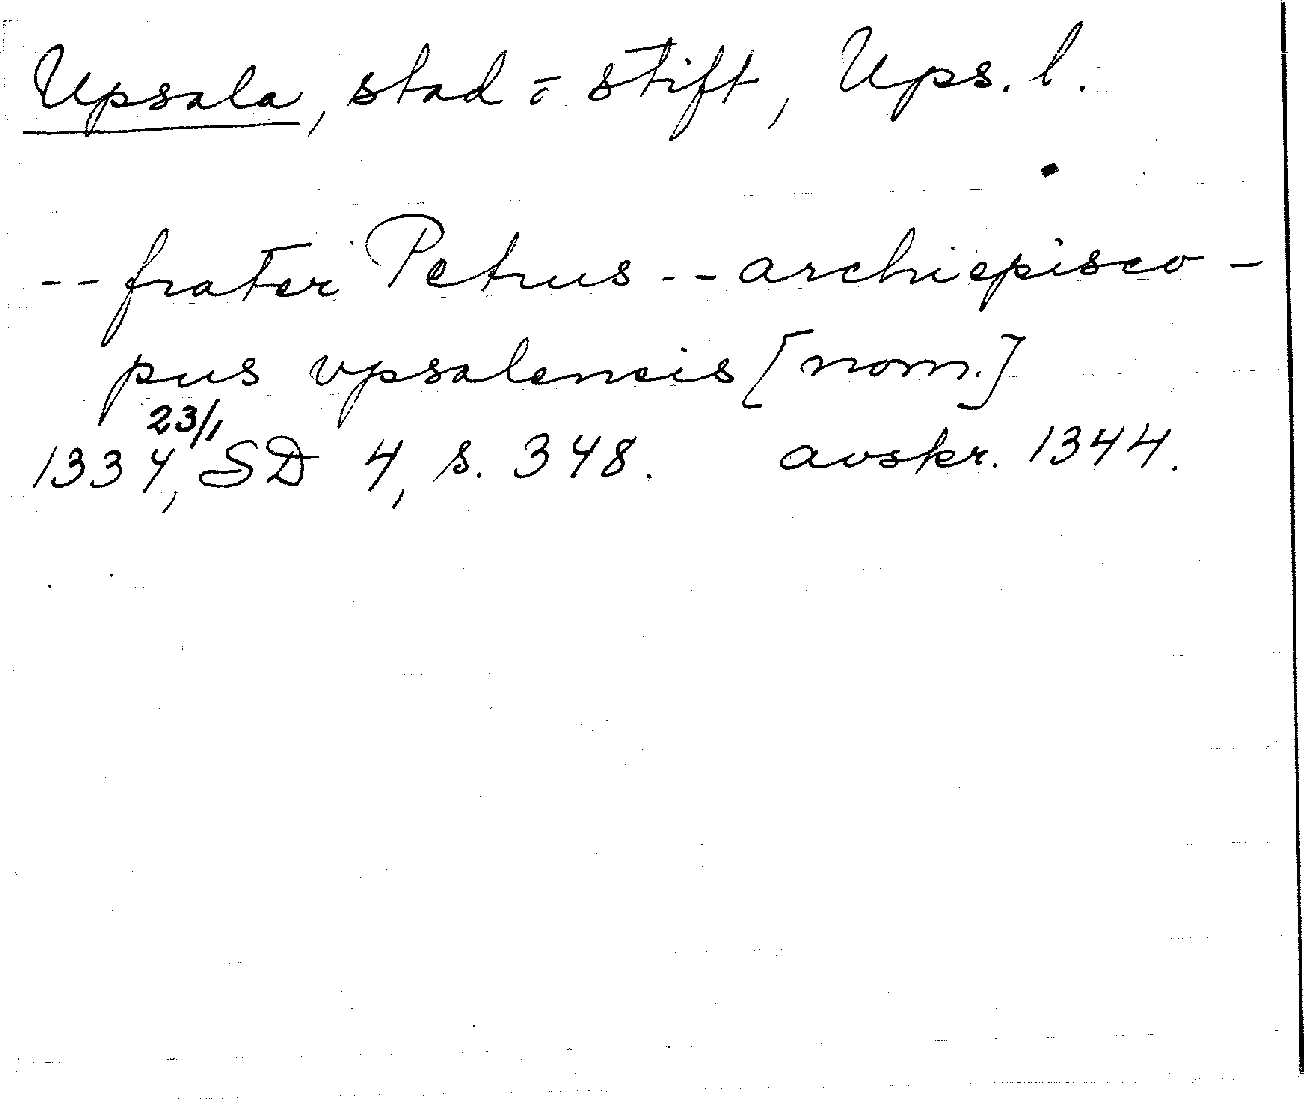 Upsala, stad o stift, Ups. l.
-- frater Petrus -- archiepisco-
pus vpsalencis [nom.]
1334 23/1, SD 4, s. 348. avskr. 1344.